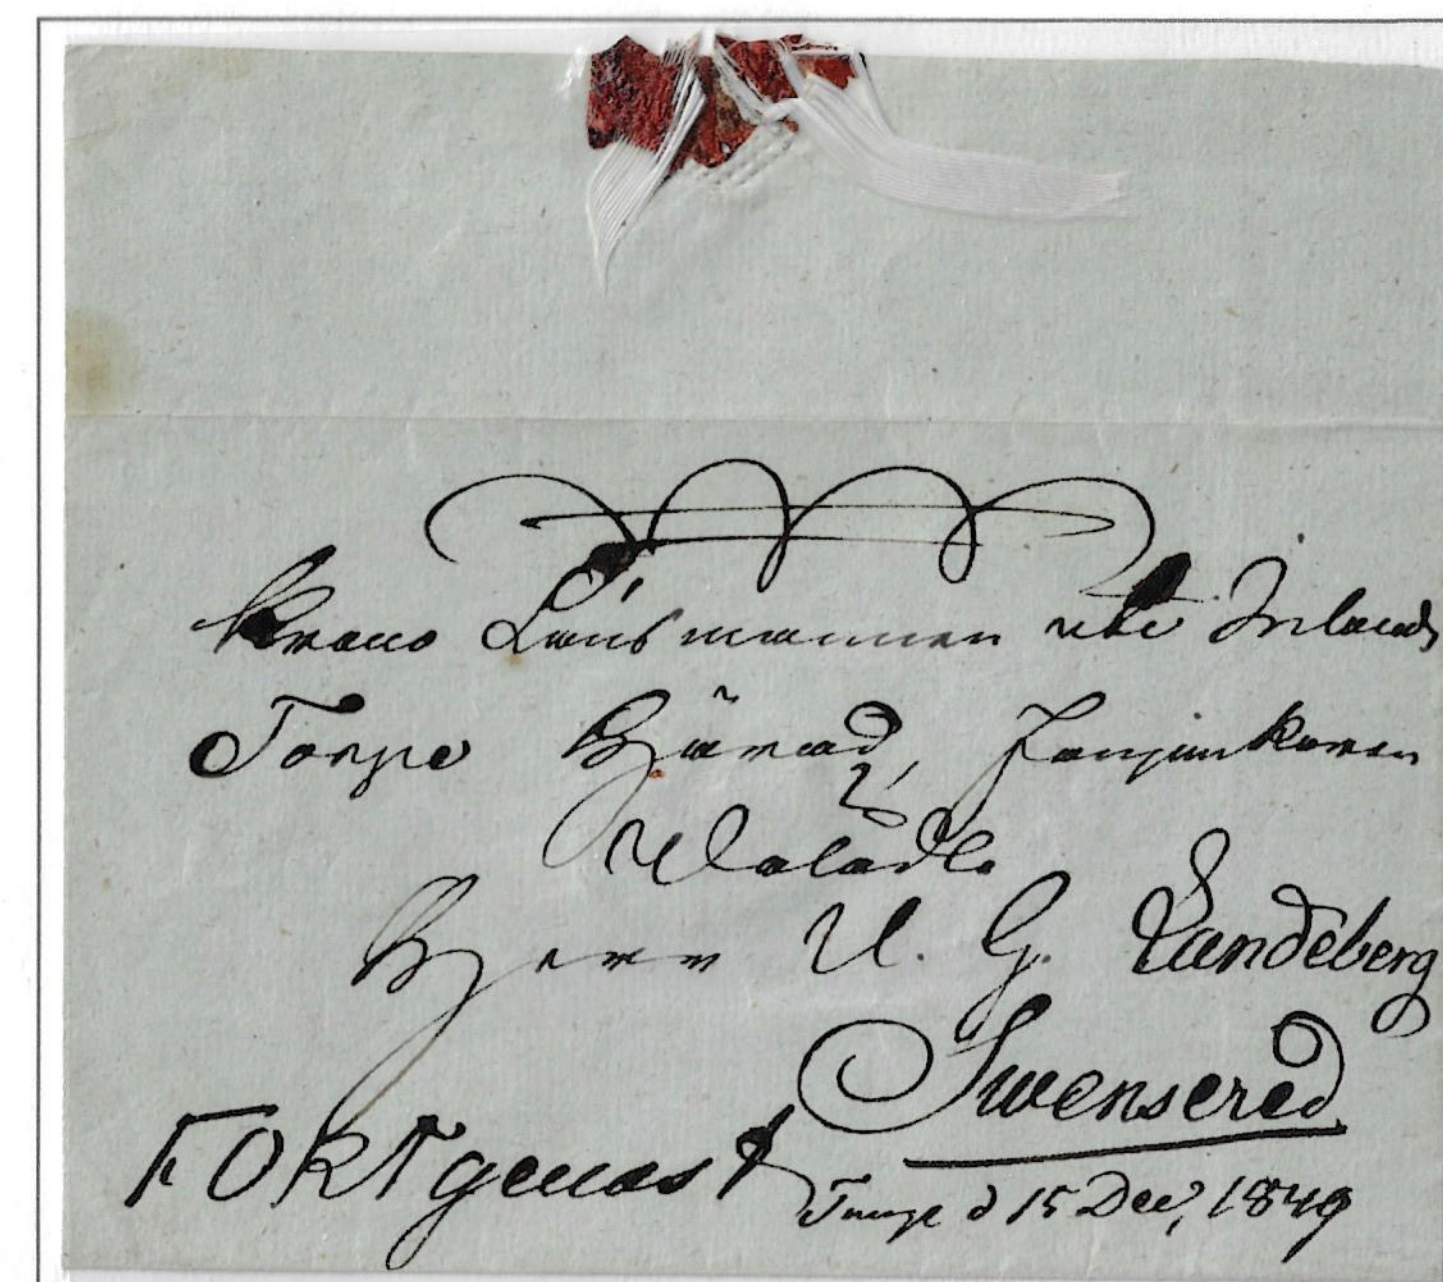 Krono Länsmannen uti Inlands
Torpe Härad, Fanjunkaren
Wälädle
Herr U. G. Landeberg
Swensered
FORTgenast
d 15 Dec, 1849